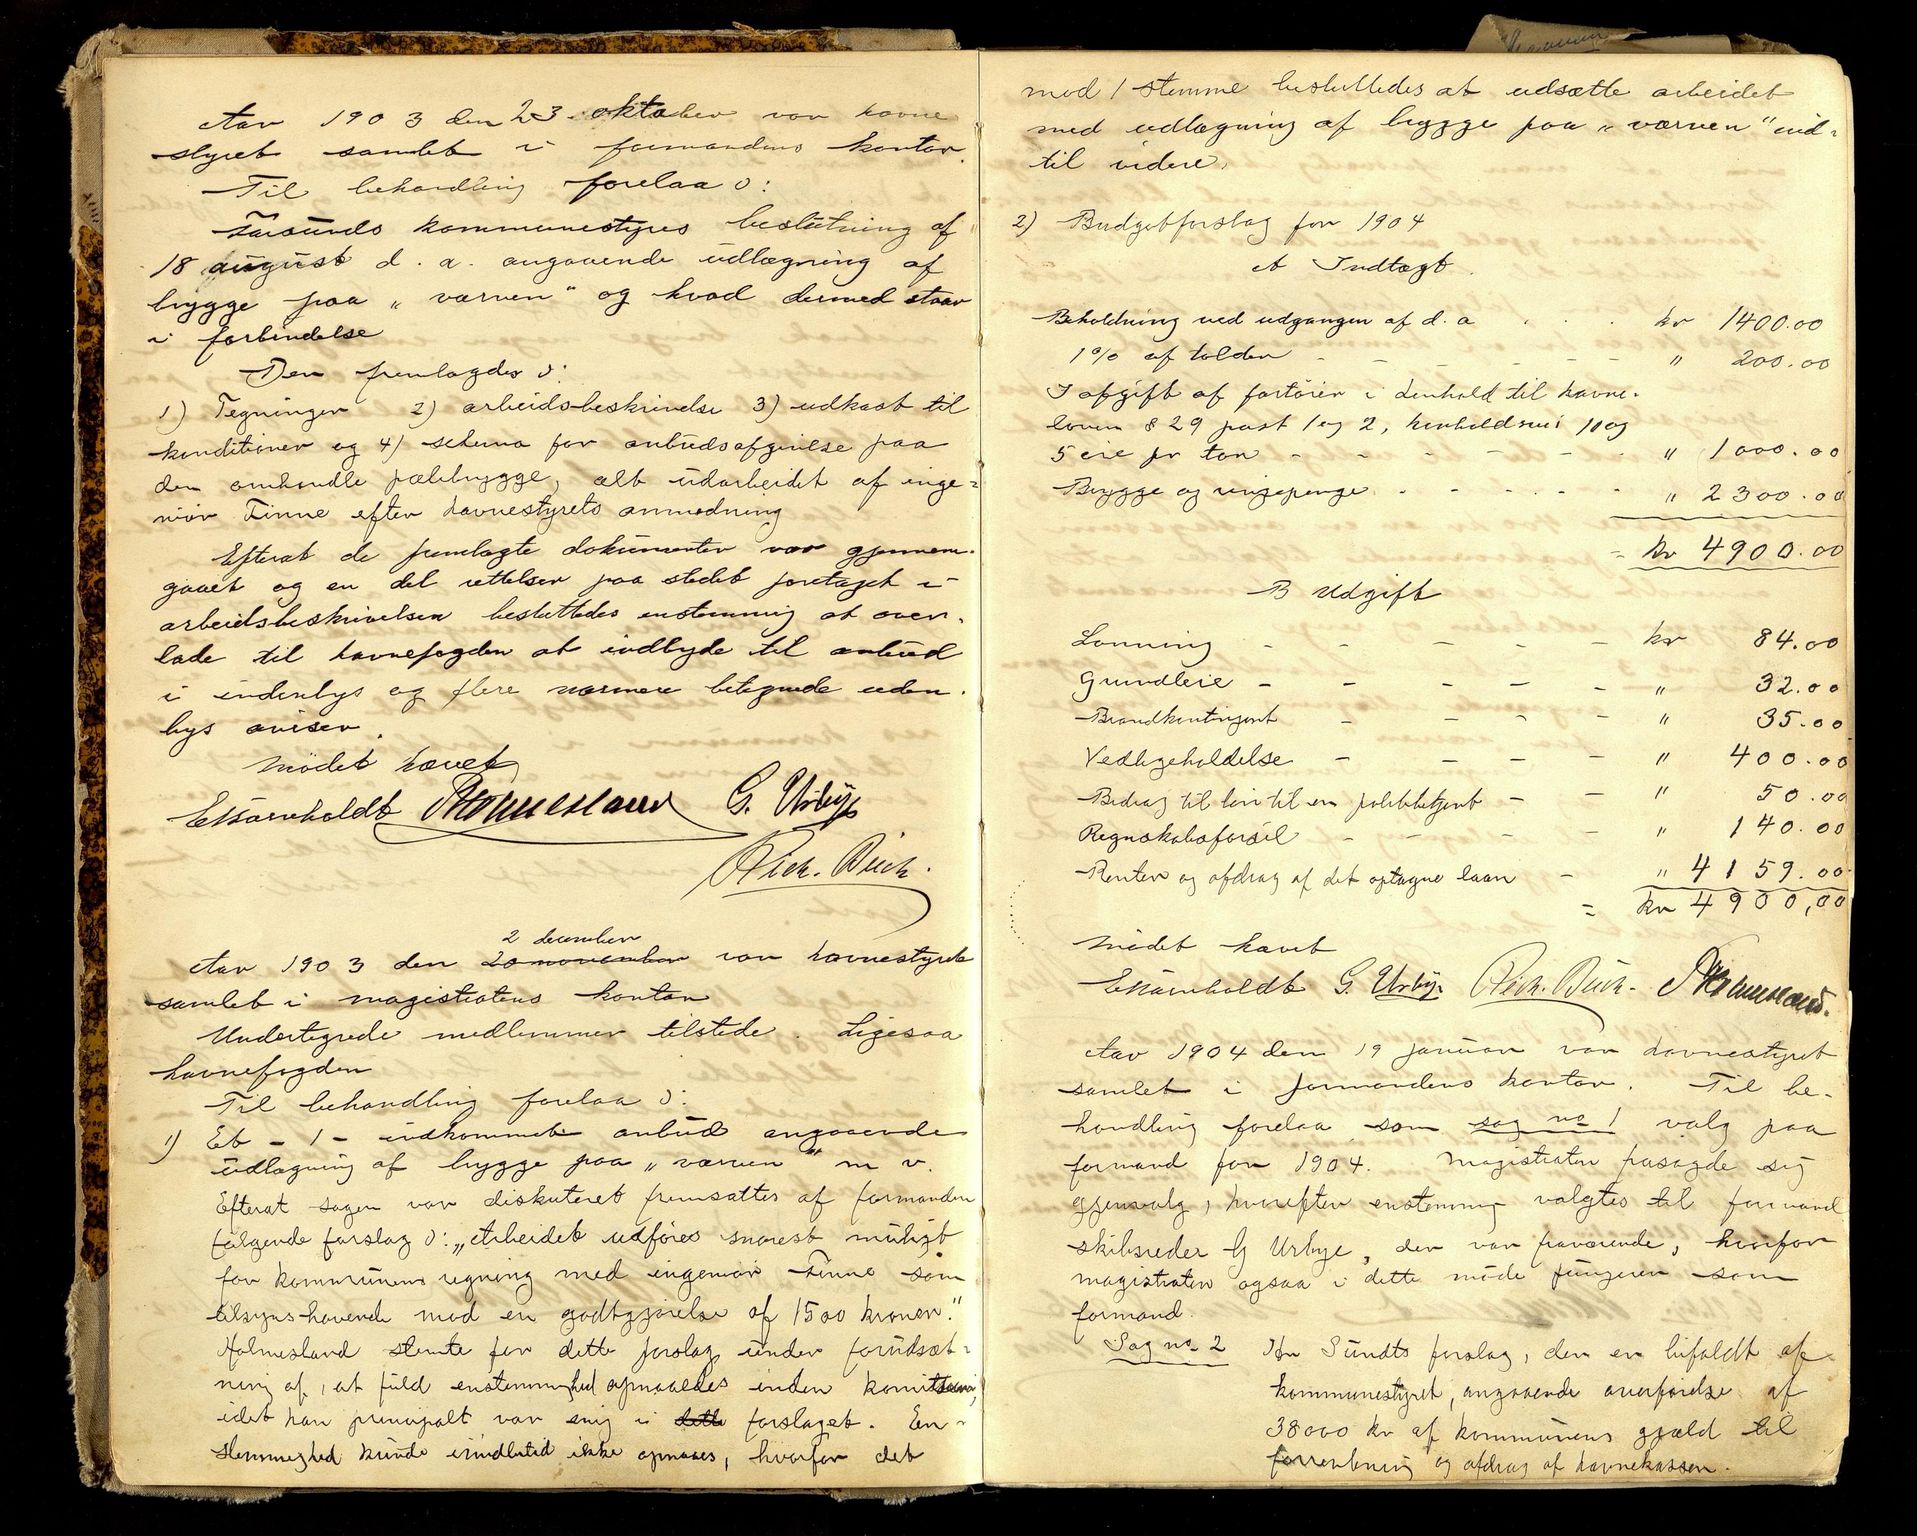 Aar 1903 den 23 oktober var havne
styret samlet i formandens kontor.
Til behandling forelaa ɔ:
Farsunds kommunestyres beslutning af
18 august d. a. angaaende udlægning af
brygge paa „værven" og hvad dermed staar
i forbindelse
Der fremlagdes ɔ:
1) Tegninger 2) arbeidsbeskrivelse 3) udkast til
konditioner og 4) schema for anbudsafgivelse paa
den omhandle pælebrygge, alt udarbeidet af inge=
niør Finne efter havnestyrets anmodning
Efterat de fremlagte dokumenter var gjennem-
gaaet og en del rettelser paa stedet foretaget i
arbeidsbeskrivelsen besluttedes enstemmig at over-
lade til havnefogden at indbyde til anbud
i indenbys og flere nærmere betegnede uden-
bys aviser.
Mødet hævet
E Barnholdt Holmesland G. Urbye
Rich. Buch.
2 december
Aar 1903 den 20 november var havnestyret
samlet i magistratens kontor
Undertegnede medlemmer tilstede. Ligesaa
havnefogden
Til behandling forelaa ɔ:
1) Et - 1 - indkommet anbud angaaende
udlægning af brygge paa „værven" m v.
Efterat sagen var diskuteret fremsattes af formanden
følgende forslag ɔ: „Arbeidet udføres snarest muligt
for kommunens regning med ingeniør Finne som
tilsynshavende mod en godtgjørelse af 1500 kroner."
Holmesland stemte for dette forslag under forudsæt-
ning af, at fuld enstemmighed opnaaedes inden
idet han principalt var enig i dette forslaget. En-
stemmighed kunde imidlertid ikke opnaaes, hvorfor det
mod 1 stemme besluttedes at udsætte arbeidet
med udlægning af brygge paa „værven" ind-
til videre.
2) Budgetforslag for 1904
A Indtægt.
Beholdning ved udgangen af d. a . . . kr 1400.00
1% af tolden - - - - - " 200.00
I afgift af fartøier i henhold til havne-
loven § 29 post 1 og 2, henholdsvis 10 og
5 øre pr ton - - - - - " 1000.00
Brygge og ringepenge - - - - - " 2300.00
= kr 4900.00
B Udgift
Lønning - - - - - kr 84.00
Grundleie - - - - - " 32.00
Brandkontingent - - - - " 35.00
Vedligeholdelse - - - - " 400.00
Bidrag til løn til en politibetjent - - " 50.00
Regnskabsførsel - - - - " 140.00
Renter og afdrag af det optagne laan - " 4159.00
= kr 4900,00
Mødet hævet
E Barnholdt G. Urbye Rich. Buch. Holmesland.
Aar 1904 den 19 januar var havnestyret
samlet i formandens kontor. Til be-
handling forelaa som sag no 1 valg paa
formand for 1904. Magistraten frasagde sig
gjenvalg, hvorefter enstemmig valgtes til formand
skibsreder G Urbye, der var fraværende, hvorfor
magistraten ogsaa i dette møde fungerer som
formand.
Sag no 2 Hr Sundts forslag, der er bifaldt af
kommunestyret, angaaende overførelse af
38000 kr af kommunens gjæld til
forrentning og afdrag af havnekassen.